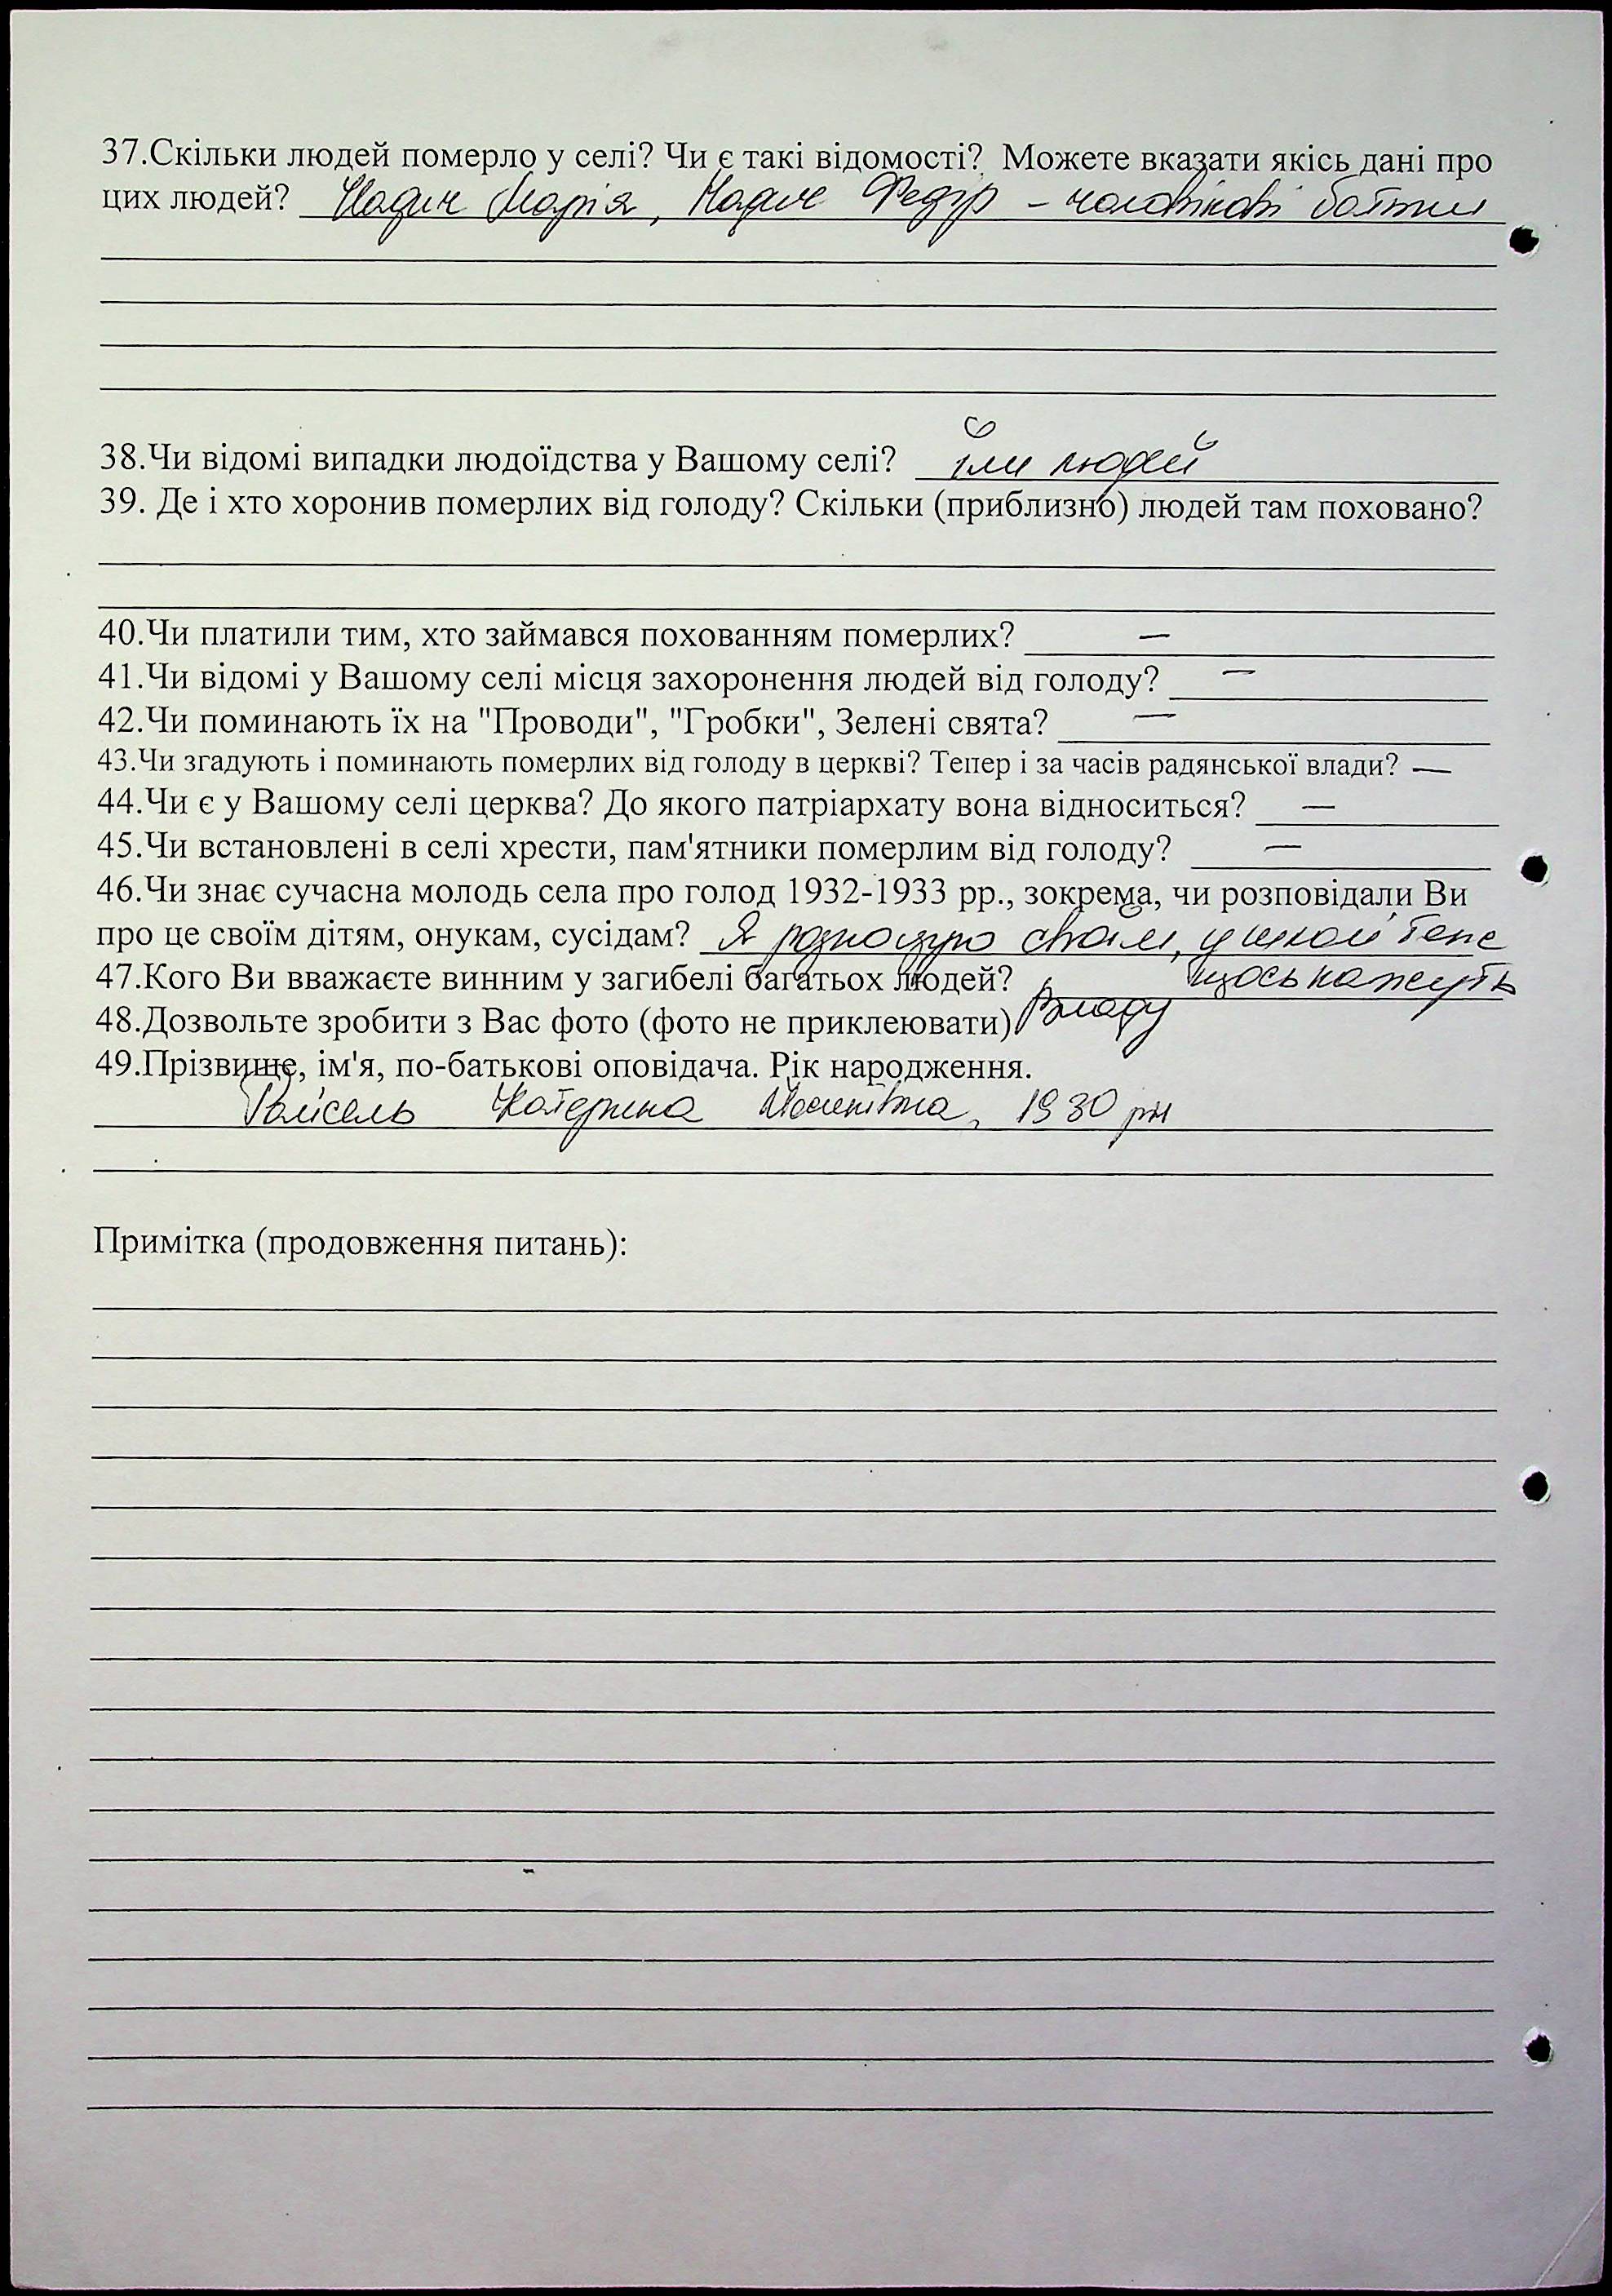 37.Скільки людей померло у селі? Чи є такі відомості? Можете вказати якісь дані про
цих людей? Марія, Федір – чоловікові батьки
38.Чи відомі випадки людоїдства у Вашому селі? їли людей
39. Де і хто хоронив померлих від голоду? Скільки (приблизно) людей там поховано?
40.Чи платили тим, хто займався похованням померлих? —
41.Чи відомі у Вашому селі місця захоронення людей від голоду? —
42.Чи поминають їх на "Проводи", "Гробки", Зелені свята? —
43.Чи згадують і поминають померлих від голоду в церкві? Тепер і за часів радянської влади? —
44.Чи є у Вашому селі церква? До якого патріархату вона відноситься? —
45.Чи встановлені в селі хрести, пам'ятники померлим від голоду? —
46.Чи знає сучасна молодь села про голод 1932-1933 рр., зокрема, чи розповідали Ви
про це своїм дітям, онукам, сусідам? Я своїм, у школі теж
щось кажуть
47.Кого Ви вважаєте винним у загибелі багатьох людей? Владу
48.Дозвольте зробити з Вас фото (фото не приклеювати)
49.Прізвище, ім'я, по-батькові оповідача. Рік народження.
Катерина 1930 рн
Примітка (продовження питань):